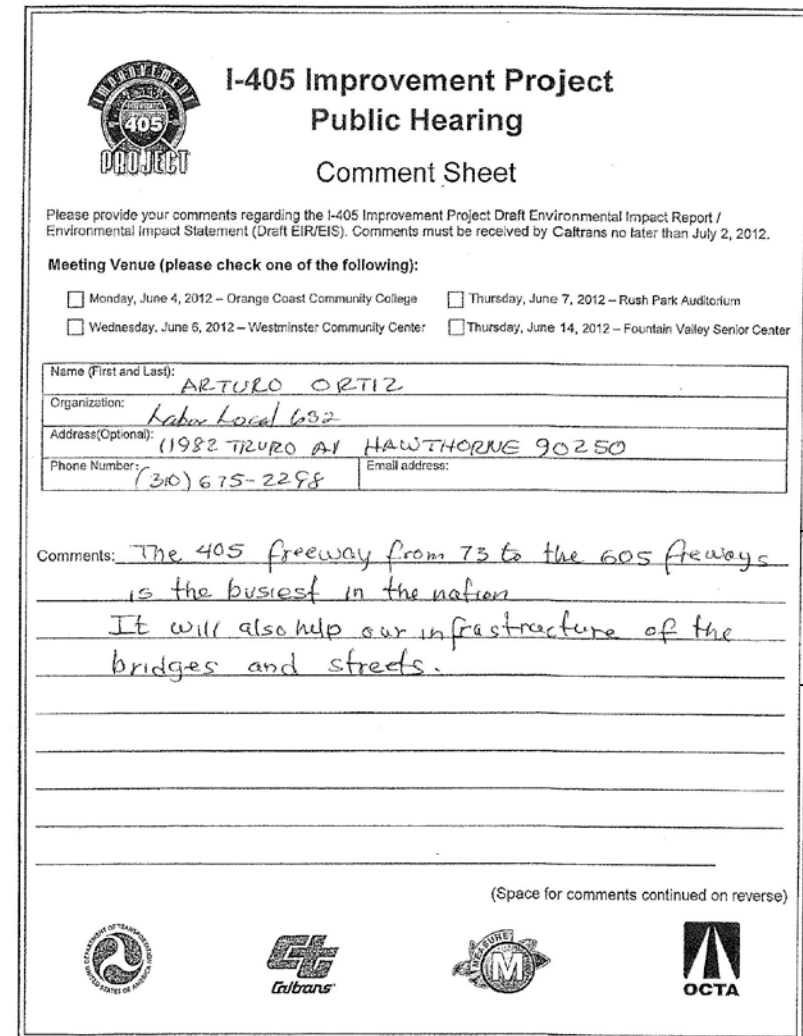 IMPROVEMENT
405
PROJECT
I-405 Improvement Project
Public Hearing
Comment Sheet
Please provide your comments regarding the I-405 Improvement Project Draft Environmental Impact Report /
Environmental Impact Statement (Draft EIR/EIS). Comments must be received by Caltrans no later than July 2, 2012.
Meeting Venue (please check one of the following):
Monday, June 4, 2012 – Orange Coast Community College
Thursday, June 7, 2012 – Rush Park Auditorium
Wednesday, June 6, 2012 – Westminster Community Center
Thursday, June 14, 2012 – Fountain Valley Senior Center
Name (First and Last): ARTURO ORTIZ
Organization: Labor Local 652
Address(Optional): 11982 TRURO AV HAWTHORNE 90250
Phone Number: (310) 675-2298
Email address:
Comments: The 405 freeway from 73 to the 605 freways
is the busiest in the nation
It will also help our infrastructure of the
bridges and streets.
(Space for comments continued on reverse)
DEPARTMENT OF TRANSPORTATION
UNITED STATES OF AMERICA
Caltrans
MEASURE
M
OCTA